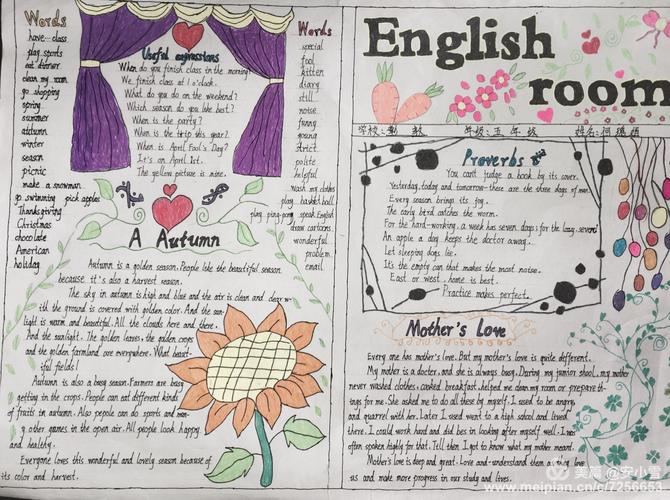 Words
have---class
play sports
eat dinner
clean my room
go shopping
spring
summer
autumn
winter
season
picnic
make a snowman
go swimming pick apples
Thanksgiving
Christmas
chocolate
American
holiday
Useful expressions
When do you finish class in the morning?
We finish class at 1 o'clock.
What do you do on the weekend?
Which season do you like best?
When is the party?
When is the trip this year?
When is April Fool's Day?
It's on April 1st.
The yellow picture is mine.
Words
special
fool
kitten
diary
still
noise
funny
young
strict
polite
helpful
wash my clothes
play basketball
play ping-pong speak English
draw cartoons
wonderful
problem
email
A Autumn
Autumn is a golden season. People like the beautiful season
because it's also a harvest season.
The sky in autumn is high and blue and the air is clean and clear. w
ith the ground is covered with golden color. And the sun-
light is warm and beautiful. All the clouds here and there.
And the sunlight. The golden leaves, the golden crops
and the golden farmland are everywhere. What beaut-
iful fields!
Autumn is also a busy season. Farmers are busy
getting in the crops. People can eat different kinds
of fruits in autumn. Also people can do sports and man-
y other games in the open air. All people look happy
and healthy.
Everyone loves this wonderful and lovely season because of
its color and harvest.
English
room
学校: 年级: 五年级 姓名:
Proverbs
You can't judge a book by its cover.
Yesterday, today and tomorrow-these are the three days of man.
Every season brings its joy.
The early bird catches the worm.
For the hard-working, a week has seven days; for the lazy, seven
An apple a day keeps the doctor away.
Let sleeping dogs lie.
It's the empty can that makes the most noise.
East or west, home is best.
Practice makes perfect.
Mother's Love
Every one has mother's love. But my mother's love is quite different.
My mother is a doctor, and she is always busy. During my junior shool, my mother
never washed clothes, cooked breakfast, helped me clean my room or prepare th-
ings for me. She asked me to do all these by myself. I used to be angry,
and quarrel with her. Later I used went to a high school and lived
there. I could work hard and did bes in looking after myself well. I was
often spoken highly for that. Tell then I got to know what my mother meant.
Mother's love is deep and great. Love and understand them as they love
us and make more progress in our study and lives.
美篇 @安小雪
www.meipian.cn/c/7256653